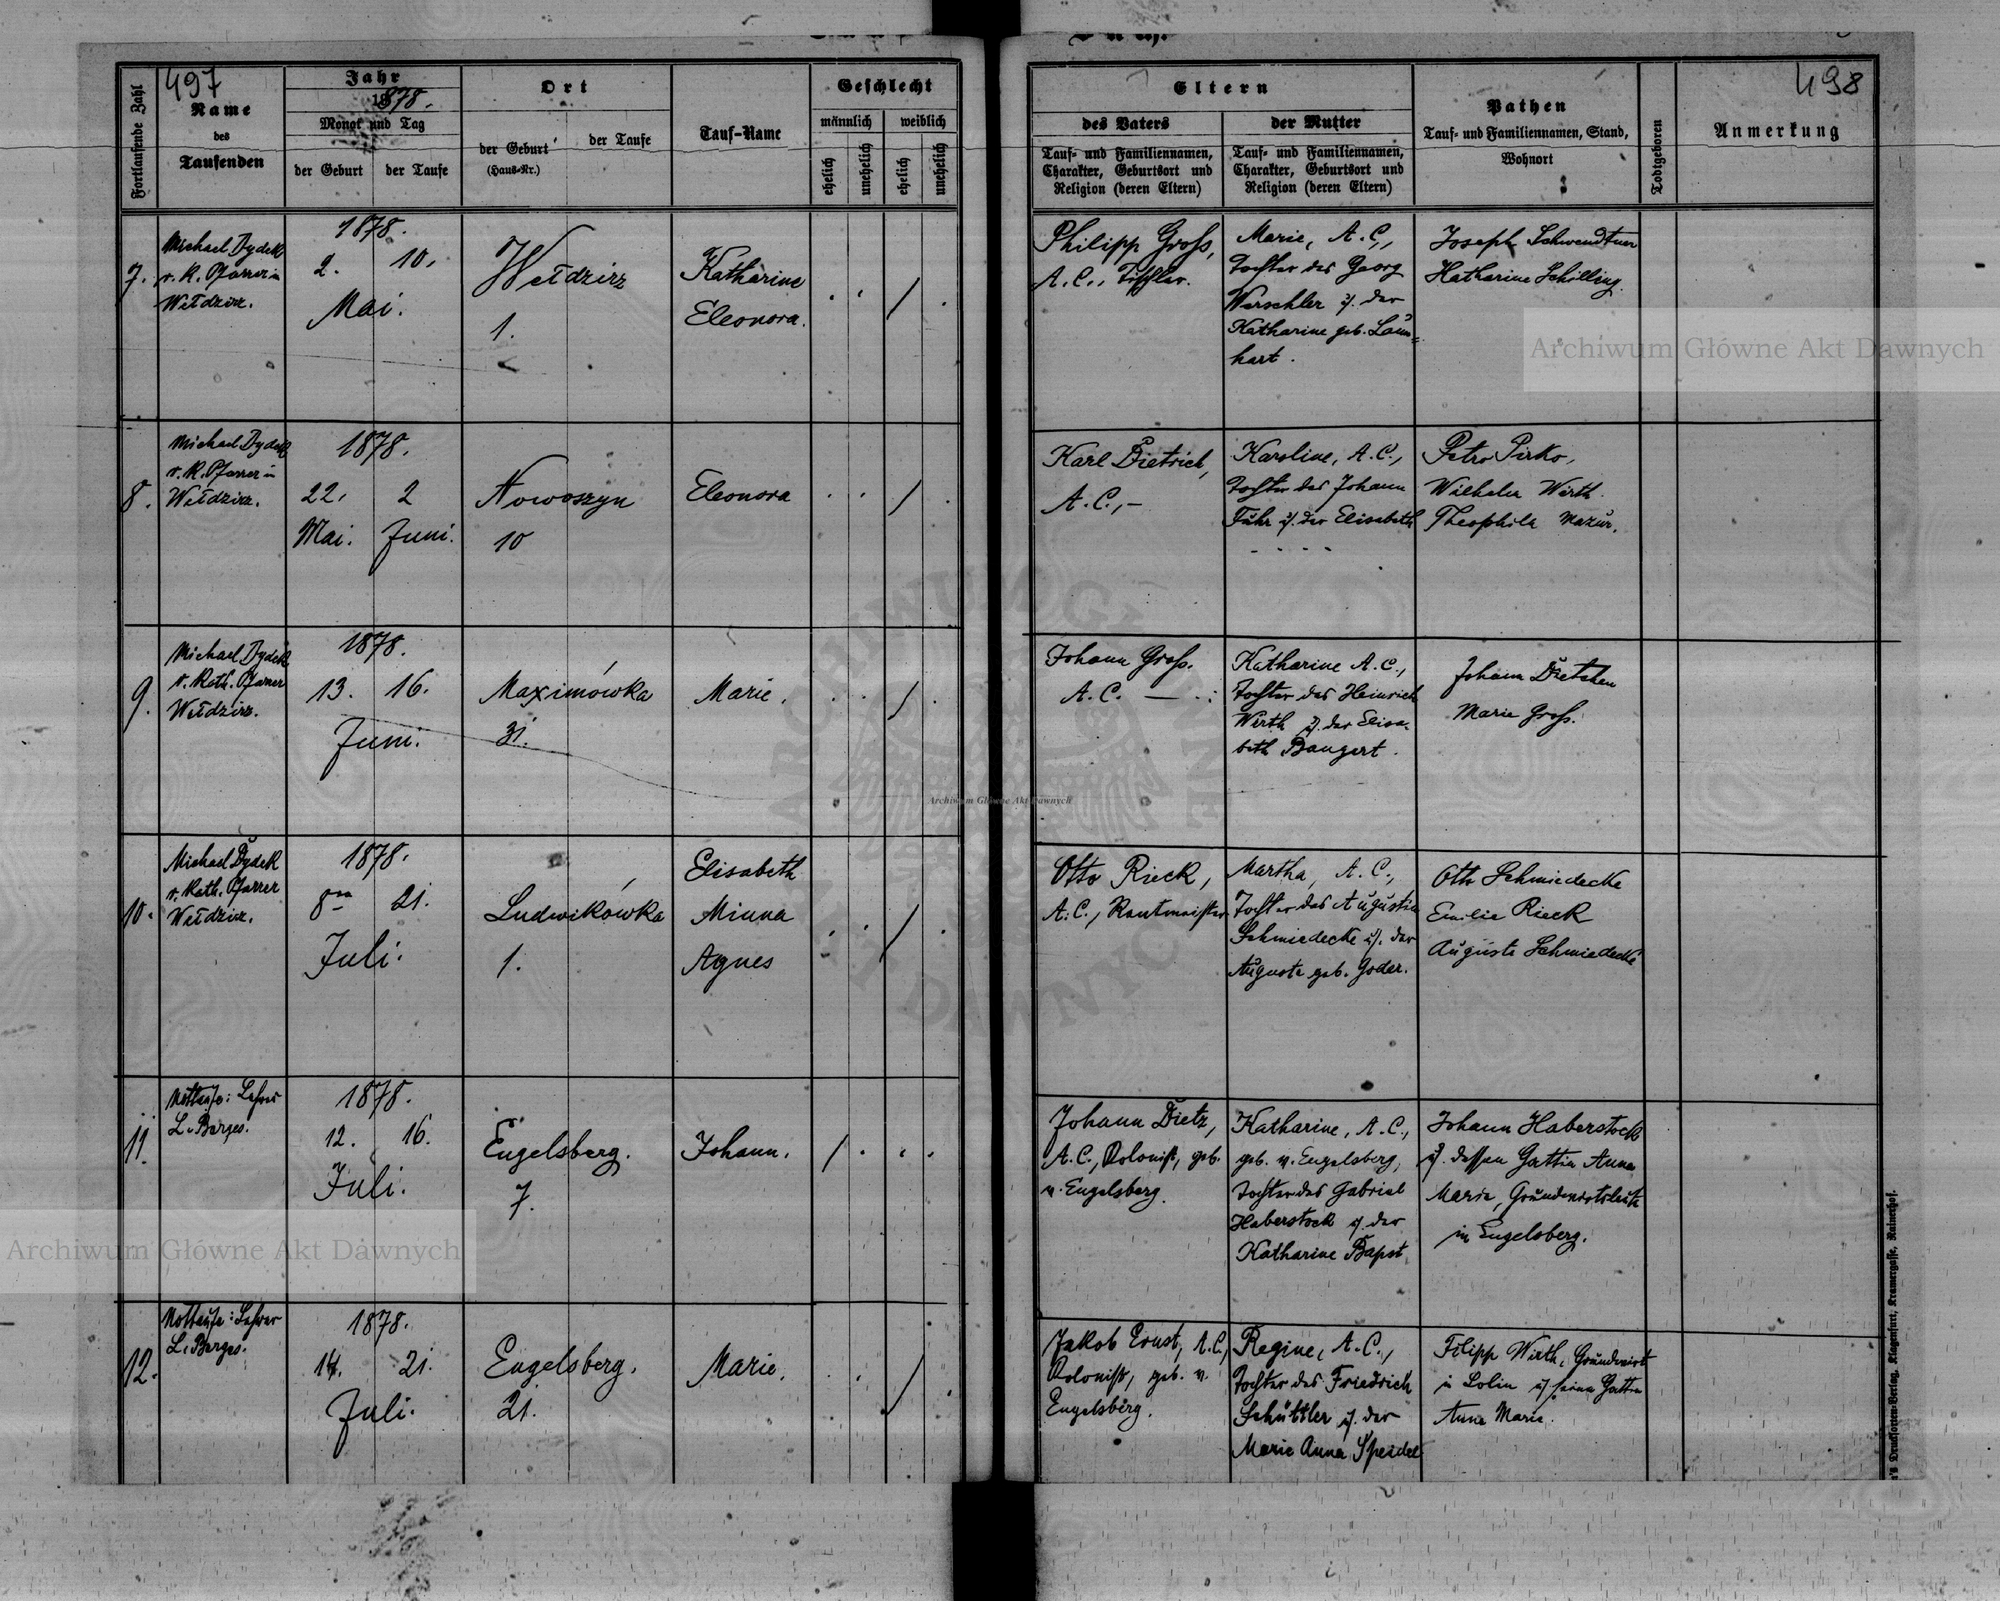 497
Fortlaufende Zahl
Name
des
Taufenden
Jahr
1878.
Monat und Tag
der Geburt
der Taufe
Ort
der Geburt
(Haus-Nr.)
der Taufe
Tauf-Name
Geschlecht
männlich
weiblich
ehelich
unehelich
ehelich
unehelich
7.
Michael Dydek
r. K. Pfarrer in
Wełdzirz.
1878.
2. 10.
Mai.
Wełdzirz
1.
Katharine
Eleonora.
8.
Michael Dydek
r. K. Pfarrer in
Wełdzirz.
1878.
22. 2
Mai. Juni.
Nowoszyn
10
Eleonora
9.
Michael Dydek
r. Kath. Pfarrer
Wełdzirz.
1878.
13. 16.
Juni.
Maximówka
31.
Marie.
10.
Michael Dydek
r. Kath. Pfarrer
Wełdzirz.
1878.
8ten 21.
Juli.
Ludwikówka
1.
Elisabeth
Minna
Agnes
11.
Nottaufe: Lehrer
L. Berges.
1878.
12. 16.
Juli.
Engelsberg.
7.
Johann.
12.
Nottaufe: Lehrer
L. Berges.
1878.
14. 21.
Juli.
Engelsberg.
21.
Marie.
498
Eltern
des Vaters
Tauf- und Familiennamen,
Charakter, Geburtsort und
Religion (deren Eltern)
der Mutter
Tauf- und Familiennamen,
Charakter, Geburtsort und
Religion (deren Eltern)
Pathen
Tauf- und Familiennamen, Stand,
Wohnort
Todtgeboren
Anmerkung
Philipp Groß,
A. C., Tischler.
Marie, A. C.,
Tochter des Georg
Werschler u. der
Katharine geb. Laun=
hart.
Joseph Schwendtner
Katharine Schilling.
Karl Dietrich,
A. C., –
Karoline, A. C.,
Tochter des Johann
Führ u. der Elisabeth
- - - -
Petro Pirko,
Wilhelm Wirth.
Theophila Mazur.
Johann Groß.
A. C. —
Katharine A. C.,
Tochter des Heinrich
Wirth u. der Elisa-
beth Bangert.
Johann Dietchen
Marie Groß.
Otto Rieck,
A. C., Rentmeister
Martha, A. C.,
Tochter des Augustin
Schmiedecke u. der
Auguste geb. Goder.
Otto Schmiedecke
Emilie Rieck
Auguste Schmiedecke
Johann Dietz,
A. C., Kolonist, geb.
v. Engelsberg.
Katharine, A. C.,
geb. v. Engelsberg,
Tochter des Gabriel
Haberstock u. der
Katharine Bapst
Johann Haberstock
u. dessen Gattin Anna
Marie, Grundwirtsleute
in Engelsberg.
Jakob Ernst, A. C.,
Kolonist, geb. v.
Engelsberg.
Regine, A. C.,
Tochter des Friedrich
Schüttler u. der
Marie Anna Speidel
Filipp Wirth, Grundwirt
in Lolin u. seine Gattin
Anna Marie.
Druckforten-Verlag, Klagenfurt, Kramergasse, Rainerhof.
Archiwum Główne Akt Dawnych
Archiwum Główne Akt Dawnych
Archiwum Główne Akt Dawnych
ARCHIWUM GŁÓWNE AKT DAWNYCH